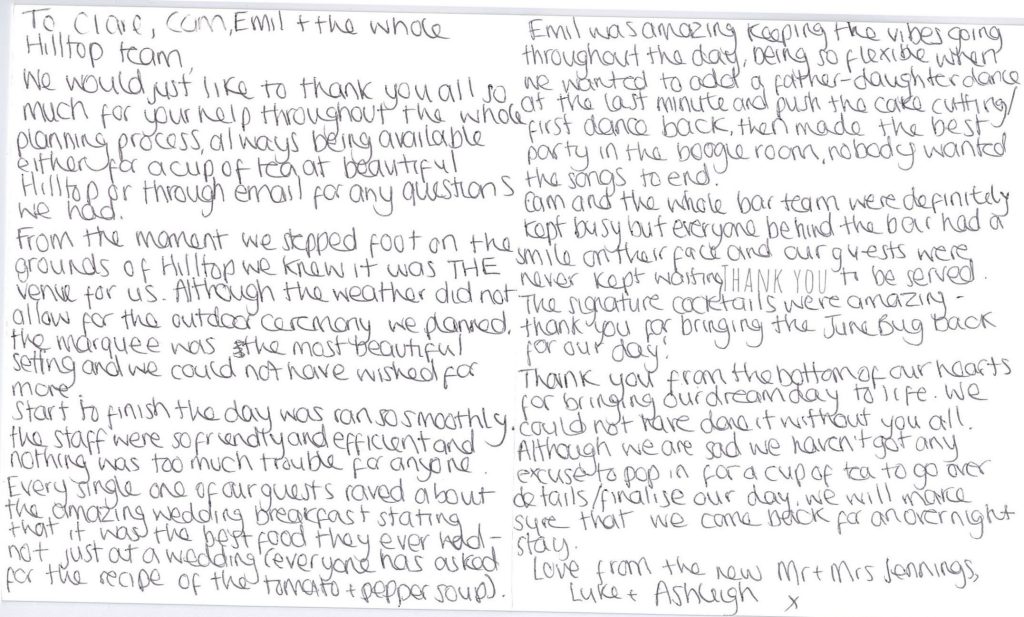 To Clare, Cam, Emil + the whole
Hilltop team,
We would just like to thank you all so
much for your help throughout the whole
planning process, always being available
either for a cup of tea at beautiful
Hilltop or through email for any questions
we had.
From the moment we stepped foot on the
grounds of Hilltop we knew it was THE
venue for us. Although the weather did not
allow for the outdoor ceremony we planned,
the marquee was the most beautiful
setting and we could not have wished for
more.
Start to finish the day was ran so smoothly.
the staff were so friendly and efficient and
nothing was too much trouble for anyone.
Every single one of our guests raved about
the amazing wedding breakfast stating
that it was the best food they ever had -
not just at a wedding (everyone has asked
for the recipe of the tomato + pepper soup).
Emil was amazing keeping the vibes going
throughout the day, being so flexible when
we wanted to add a father-daughter dance
at the last minute and push the cake cutting/
first dance back, then made the best
party in the boogie room, nobody wanted
the songs to end.
Cam and the whole bar team were definitely
kept busy but everyone behind the bar had a
smile on their face and our guests were
never kept waiting THANK YOU to be served.
The signature cocktails were amazing -
thank you for bringing the June Bug back
for our day!
Thank you from the bottom of our hearts
for bringing our dream day to life. We
could not have done it without you all.
Although we are sad we haven't got any
excuse to pop in for a cup of tea to go over
details/finalise our day, we will make
sure that we come back for an overnight
stay.
Love from the new Mr + Mrs Jennings,
Luke + Ashleigh x